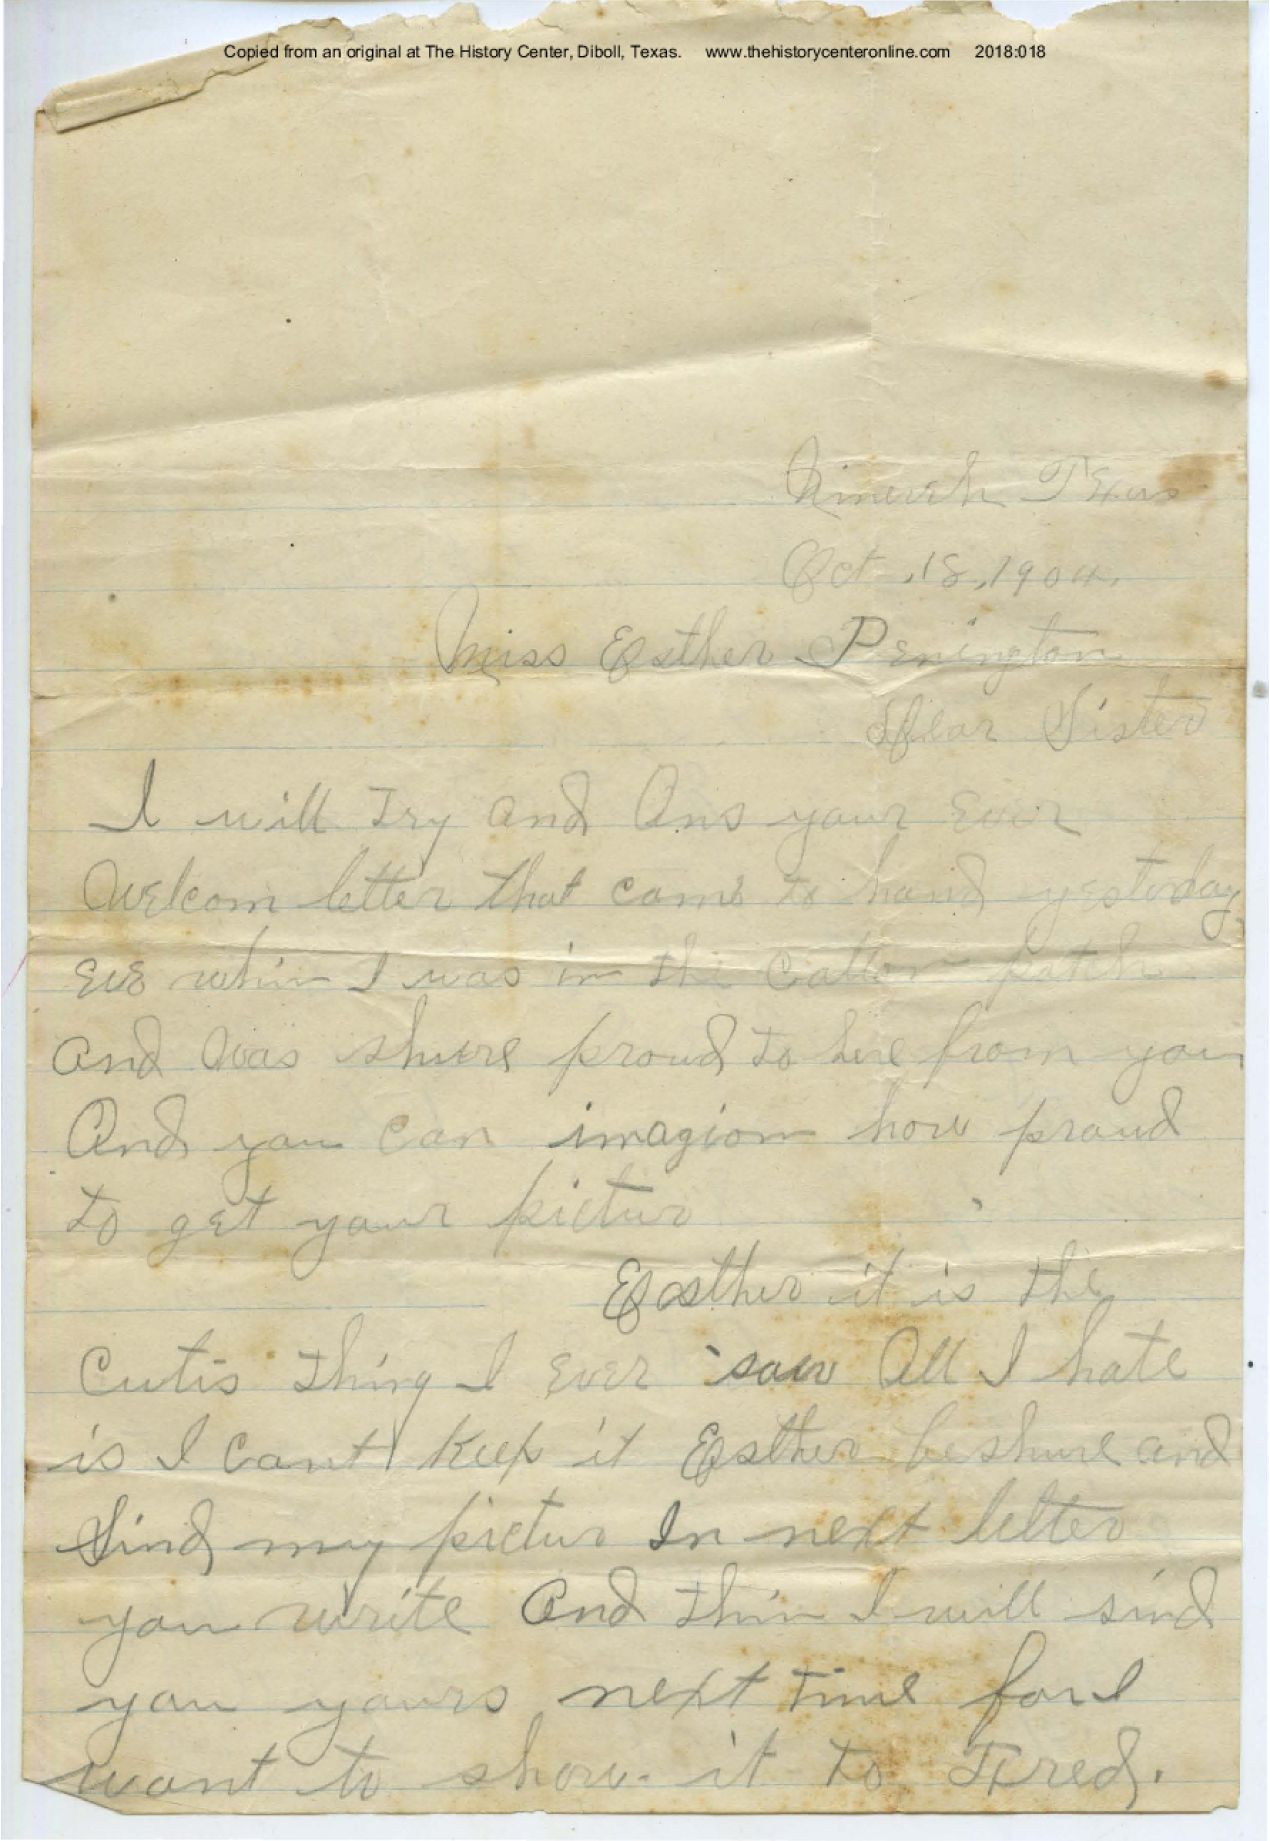 Copied from an original at The History Center, Diboll, Texas. www.thehistorycenteronline.com 2018:018
Nineveh Texas
Oct. 18, 1904.
Miss Esther Penington
Dear Sister
I will Try and Ans your Ever
Welcom letter that came to hand yesterday
Eve whin I was in the Cotton patch
and Was shure proud to here from you
And you can imagion how proud
to get your pictur
Esther it is the
Cutis thing I Ever saw All I hate
is I Cant Keep it Esther be shure and
Sind my pictur In next letter
you write And thin I will sind
you yours next time for I
want to show it to Fred.